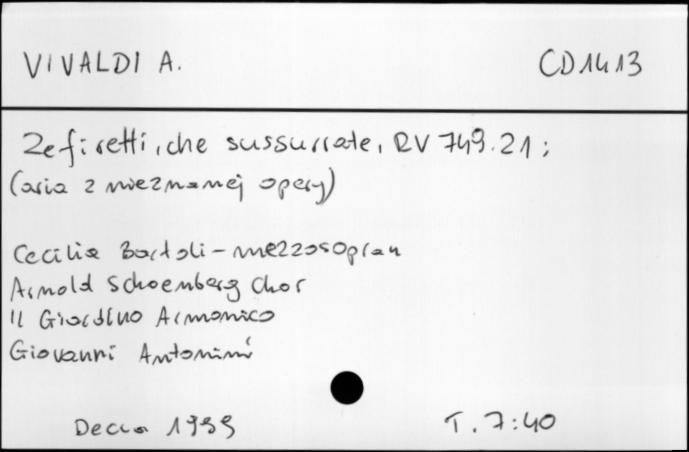 VIVALDI A. CD1413
Zefiretti, che sussurrate, RV 749.21;
(aria z nieznanej opery)
Cecilia Bartoli - mezzosopran
Arnold Schoenberg Chor
Il Giardino Armonico
Giovanni Antonini
Decca 1999 T. 7:40